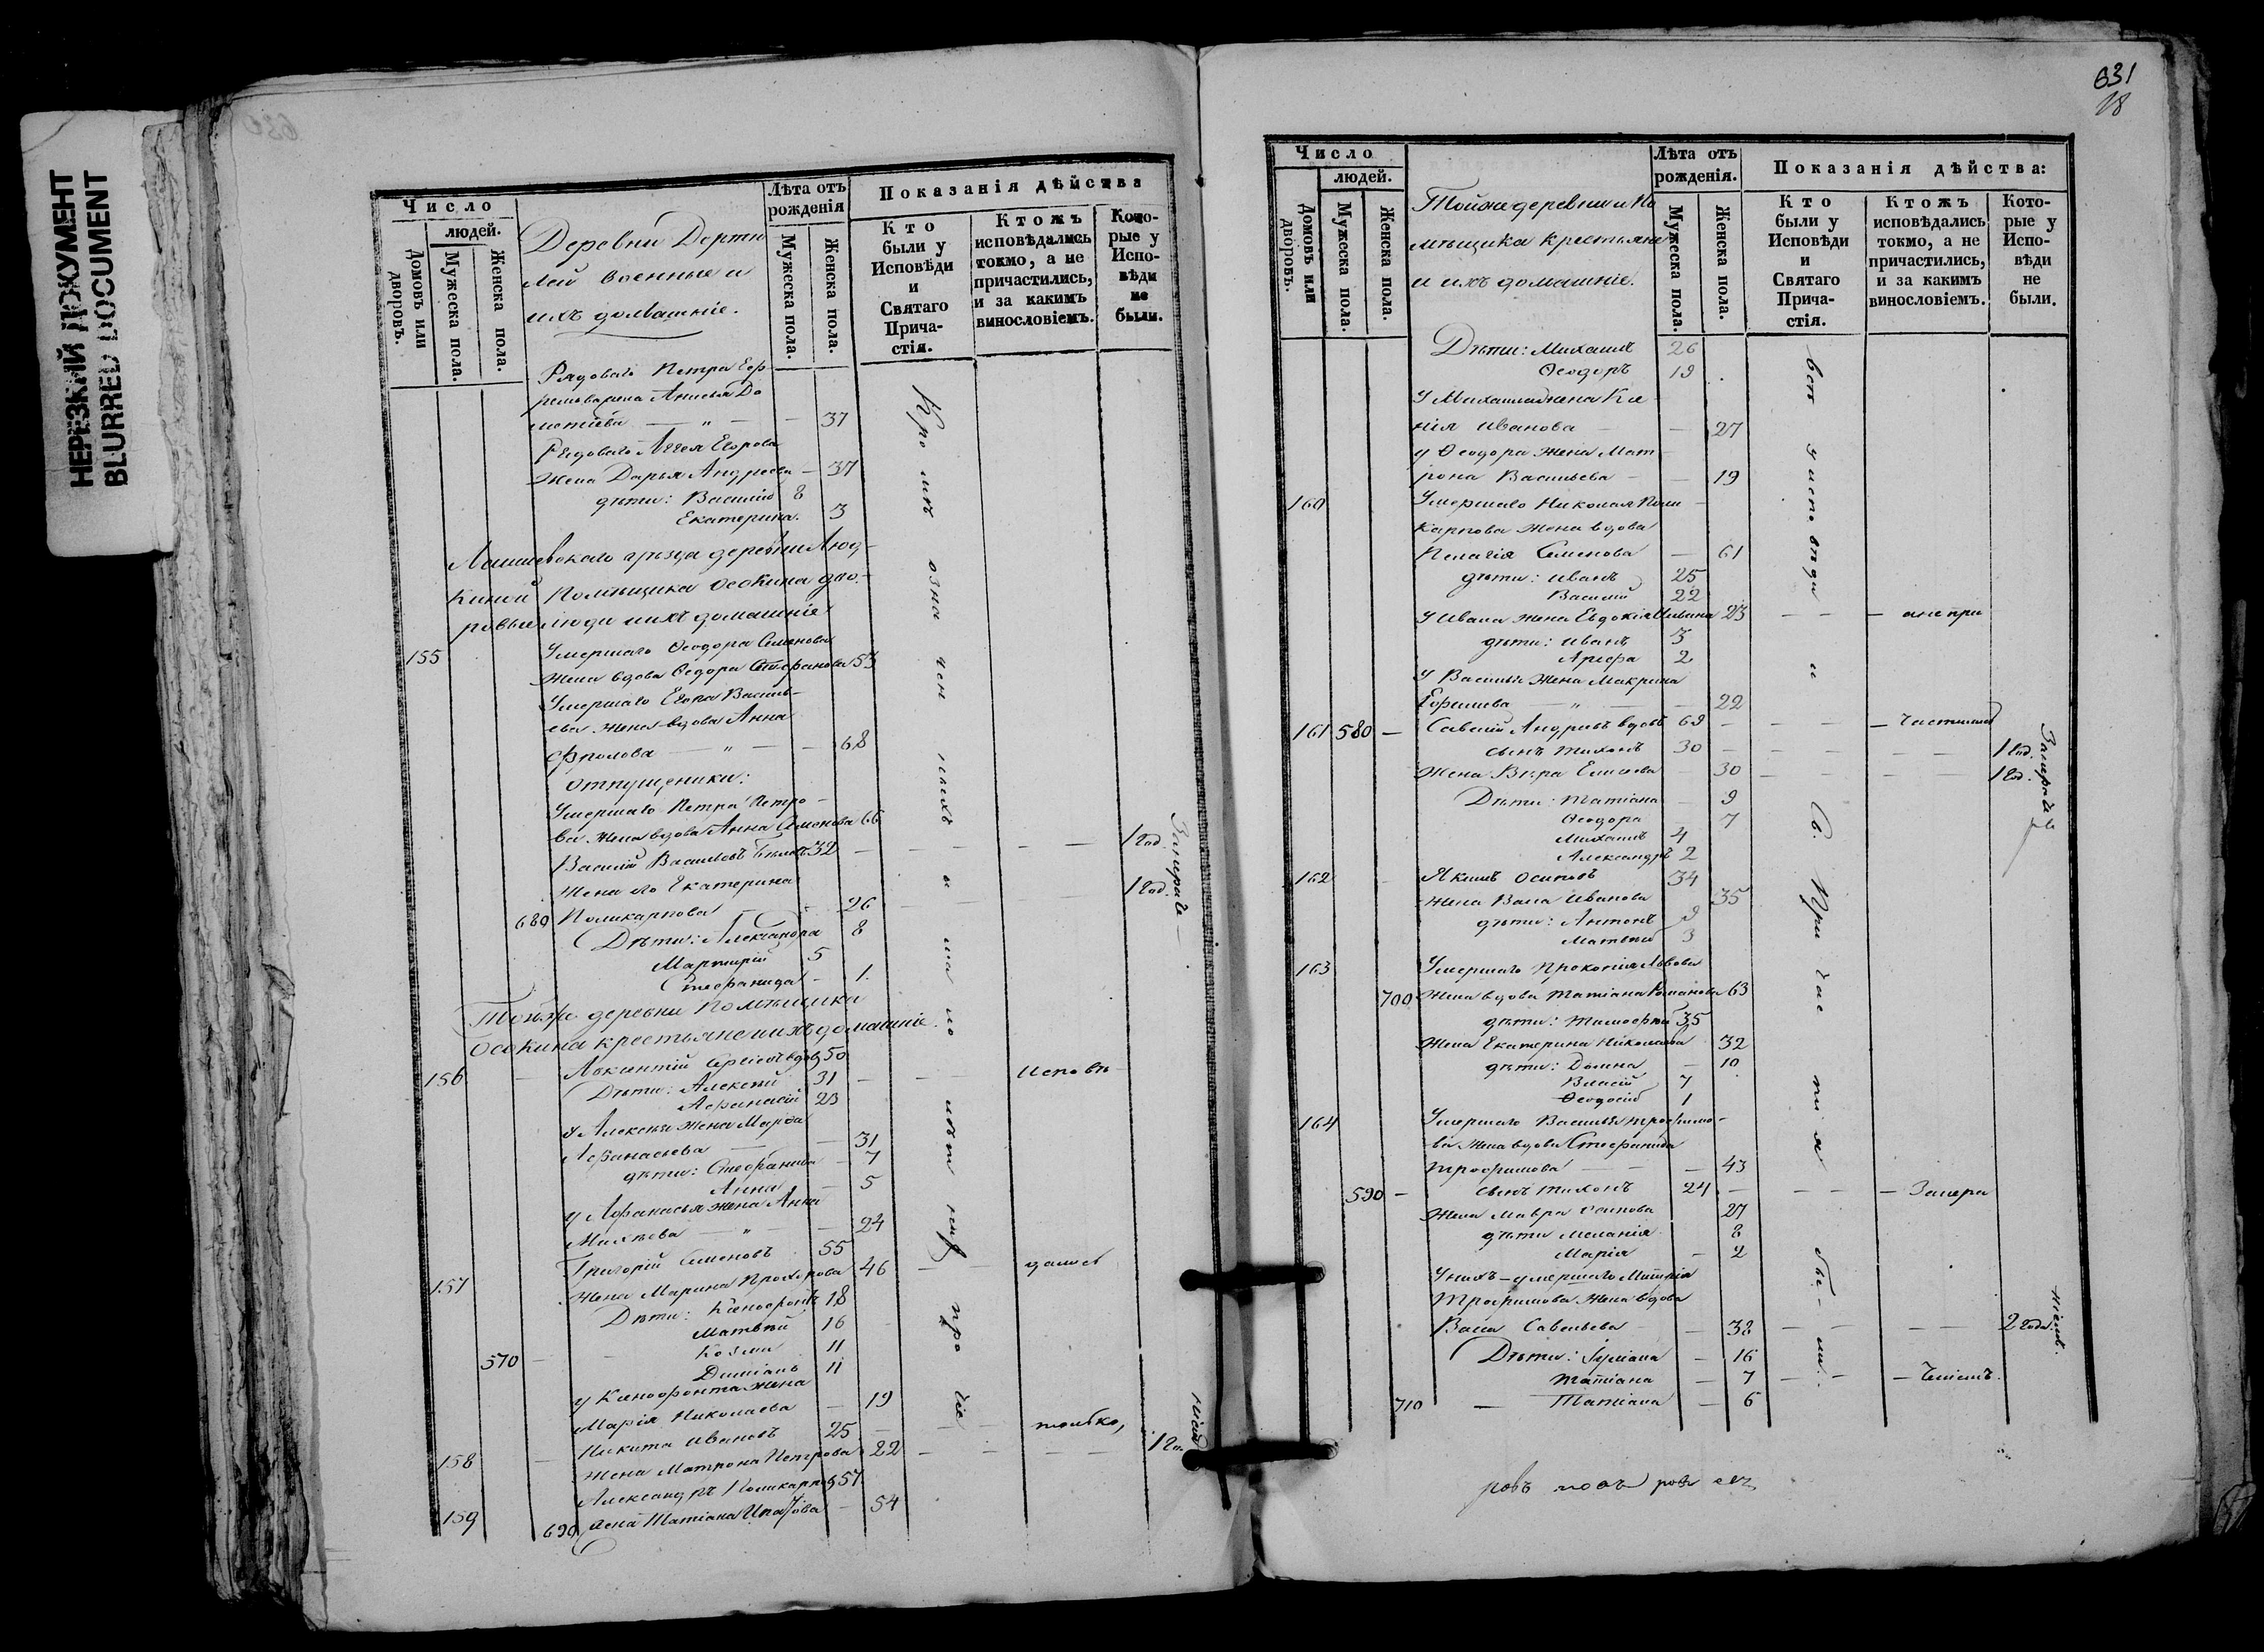 НЕРЕЗКИЙ ДОКУМЕНТ
BLURRED DOCUMENT
Число
людей.
Домовъ или дворовъ.
Мужеска пола.
Женска пола.
Деревни Дерти
лей военные и
ихъ домашніе.
Лѣта отъ рожденія
Мужеска пола.
Женска пола.
Показанія дѣйства
Кто были у Исповѣди и Святаго Причастія.
Ктожъ исповѣдались токмо, а не причастились, и за какимъ винословіемъ.
Которые у Исповѣди не были.
Рядоваго Петра Еф
жена Анисья До
— " — — 37
Рядоваго Егорова
жена Дарья Андреева — 37
дѣти: Василій 8
Екатерина. 3
Лаишевскаго уѣзда деревни Люд-
киной Помѣщика Осокина дво-
ровые люди и ихъ домашніе
155 Умершаго Ѳеодора Семенова
жена вдова Ѳедора Стефанова 53
Умершаго Егора Василь-
ева жена вдова Анна
Фролова — " — — 68
отпущеники:
Умершаго Петра Петро-
ва жена вдова Анна Семенова 66
Василій Васильевъ 32 — — — — — 1 год.
жена его Екатерина
680 Поликарпова — 26 — — — 1 год.
Дѣти: Александра 8
Мартирій 5
Стефанида — 1.
Тойже деревни Помѣщика
Осокина крестьяне и ихъ домашніе
156 — Авксентій вдовъ 50
Дѣти: Алексѣй 31 — — — Исповѣ
Афанасій 23
у Алексѣя жена Марфа
Афанасьева — — 31
дѣти: Стефанида — 7
Анна — 5
у Афанасья жена Анна
Михѣева — " — 24
157 Григорій Семеновъ 55
жена Марина Прохорова 46 — — дались
Дѣти: Ксенофонтъ 18
Матвѣй 16
570 — — Козма 11
Даміанъ 11
у Ксенофонта жена
Марія Николаева — 19
158 — Никита Ивановъ 25 — — только,
жена Матрона Петрова 22 — — — — 1 го.
159 Александръ Поликарповъ 57
690 жена Татіана Игнатова — 54
Кромѣ означенныхъ
прочіе
631
18
Число
людей.
Домовъ или дворовъ.
Мужеска пола.
Женска пола.
Тойже деревни и По
мѣщика крестьяне
и ихъ домашніе.
Лѣта отъ рожденія.
Мужеска пола.
Женска пола.
Показанія дѣйства:
Кто были у Исповѣди и Святаго Причастія.
Ктожъ исповѣдались токмо, а не причастились, и за какимъ винословіемъ.
Которые у Исповѣди не были.
Дѣти: Михаилъ 26
Ѳеодоръ 19
у Михаила жена Ксе
нія Иванова — — 27
у Ѳеодора жена Мат
рона Васильева — — 19
160 Умершаго Николая Поли
карпова жена вдова
Пелагія Семенова — 61
дѣти: Иванъ 25
Василій 22
у Ивана жена Евдокія Ильина 23 — — — а не при
дѣти: Иванъ 3
Арефа 2
у Василья жена Макрина
Ефимова — " — — 22
161 580 — Савелій Андреевъ вдовъ 69 — — — — частились
сынъ Тихонъ 30 — — — — — 1 год.
жена Вѣра Елисеева — 30 — — — — 1 год.
Дѣти: Татіана — 9
Ѳеодора 7
Михаилъ 4
Александръ 2
162 — Якимъ Осиповъ 34
жена Васса Иванова 35
дѣти: Антонъ 9
Матвѣй 3
163 Умершаго Прокопія Львова
700 жена вдова Татіана Романова 63
дѣти: Тимофей 35
жена Екатерина Николаева 32
дѣти: Домна — 10
Власій 7
Ѳеодосій 1
164 Умершаго Василья Трофимо-
ва жена вдова Стефанида
Трофимова — — — 43
590 — сынъ Тихонъ 24 — — — — Запира
жена Мавра Осипова 27
дѣти Меланія 8
Марія — 2
У нихъ — умершаго Матвѣя
Трофимова жена вдова
Васса Савельева — — 38 — — — — 2 года.
Дѣти: Іуліана — 16
Татіана — 7 — — — тельствъ.
710 — Татіана — 6
всѣ у исповѣди и С. Причастія были.